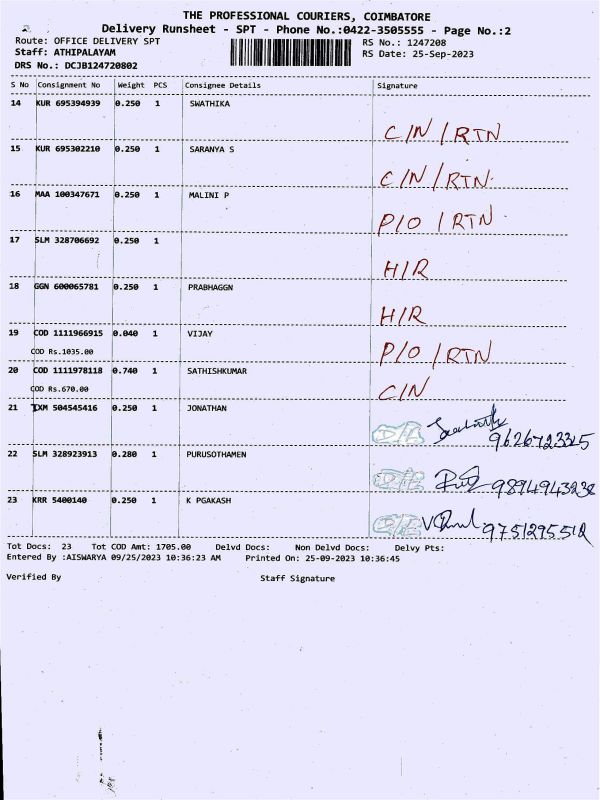 THE PROFESSIONAL COURIERS, COIMBATORE
Delivery Runsheet - SPT - Phone No.:0422-3505555 - Page No.:2
Route: OFFICE DELIVERY SPT RS No.: 1247208
Staff: ATHIPALAYAM RS Date: 25-Sep-2023
DRS No.: DCJB124720802
S No Consignment No Weight PCS Consignee Details Signature
14 KUR 695394939 0.250 1 SWATHIKA
C/N/RTN
15 KUR 695302210 0.250 1 SARANYA S
C/N/RTN.
16 MAA 100347671 0.250 1 MALINI P
P/O/RTN.
17 SLM 328706692 0.250 1
H/R
18 GGN 600065781 0.250 1 PRABHAGGN
H/R
19 COD 1111966915 0.040 1 VIJAY
COD Rs.1035.00 P/O/RTN
20 COD 1111978118 0.740 1 SATHISHKUMAR
COD Rs.670.00 C/N
21 IXM 504545416 0.250 1 JONATHAN
9626723325
22 SLM 328923913 0.280 1 PURUSOTHAMEN
9894943232
23 KRR 5400140 0.250 1 K PGAKASH
9751295512
Tot Docs: 23 Tot COD Amt: 1705.00 Delvd Docs: Non Delvd Docs: Delvy Pts:
Entered By :AISWARYA 09/25/2023 10:36:23 AM Printed On: 25-09-2023 10:36:45
Verified By Staff Signature